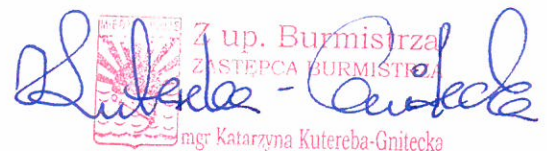 Z up. Burmistrza
ZASTĘPCA BURMISTRZA
Kutereba-Gnitecka
mgr Katarzyna Kutereba-Gnitecka